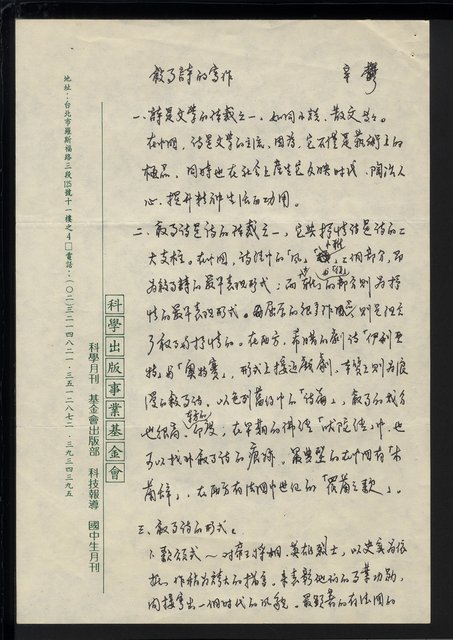 敘事詩的寫作 辛鬱
一、詩是文學的體裁之一，如同小說、散文等。
在中國，詩是文學的主流，因為，它不僅是藝術上的
極品，同時也在社會上產生反映時代、陶冶人
心、提升精神生活的功用。
二、敘事詩是詩的體裁之一，它與抒情詩是詩的二
大支柱。在中國，詩經中的「風」、二個部分，即
為敘事詩的最早表現形式；而的部分則為抒
情的最早表現形式。屈原的很多作品，則是往
了敘事的抒情的。在西方，希臘的劇詩「伊利亞
特」與「奧特賽」，形式上接近戲劇，本質上則為浪
漫的敘事詩，以色列舊約中的「詩篇」，敘事的成分
也很高，印度，在早期的佛經「吠陀經」中，也
可以找到敘事詩的痕跡。最典型的在中國有「木
蘭辭」，在西方有法國中世紀的「羅蘭之歌」。
三、敘事詩的形式。
1. 歌頌式～對帝王將相、英雄烈士，以史實為依
據，作極為誇大的描寫，來表彰他們的事功勛，
間接寫出一個時代的風貌。最顯著的有法國的
科學出版事業基金會
科學月刊 基金會出版部 科技報導 國中生月刊
地址：台北市羅斯福路三段125號十一樓之4 電話：(〇二)三二一四八二一．三五一二八七二．三九三四三九五